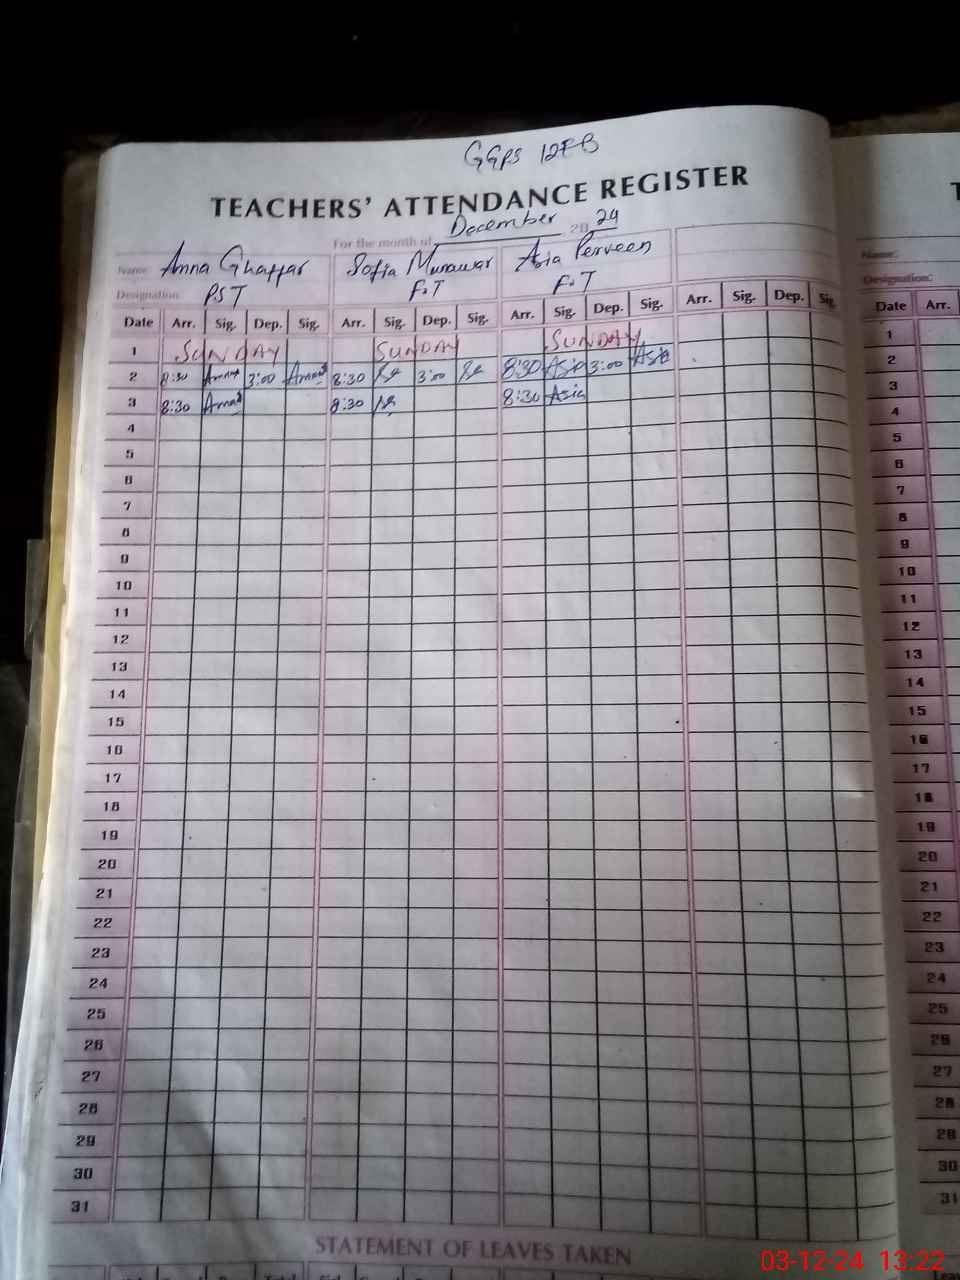 GGPS 12EB
TEACHERS' ATTENDANCE REGISTER
For the month of December 2024
Name Anna Ghaffar Sofia Munawar Asia Perveen
Designation PST F.T F.T
Date Arr. Sig. Dep. Sig. Arr. Sig. Dep. Sig. Arr. Sig. Dep. Sig. Arr. Sig. Dep. Sig.
1 SUNDAY SUNDAY SUNDAY
2 8:30 Anna 3:00 Anna 8:30 3:00 8:30 Asia 3:00 Asia
3 8:30 Anna 8:30 8:30 Asia
4
5
6
7
8
9
10
11
12
13
14
15
16
17
18
19
20
21
22
23
24
25
26
27
28
29
30
31
STATEMENT OF LEAVES TAKEN
Name:
Designation:
Date Arr.
1
2
3
4
5
6
7
8
9
10
11
12
13
14
15
16
17
18
19
20
21
22
23
24
25
26
27
28
29
30
31
03-12-24 13:22